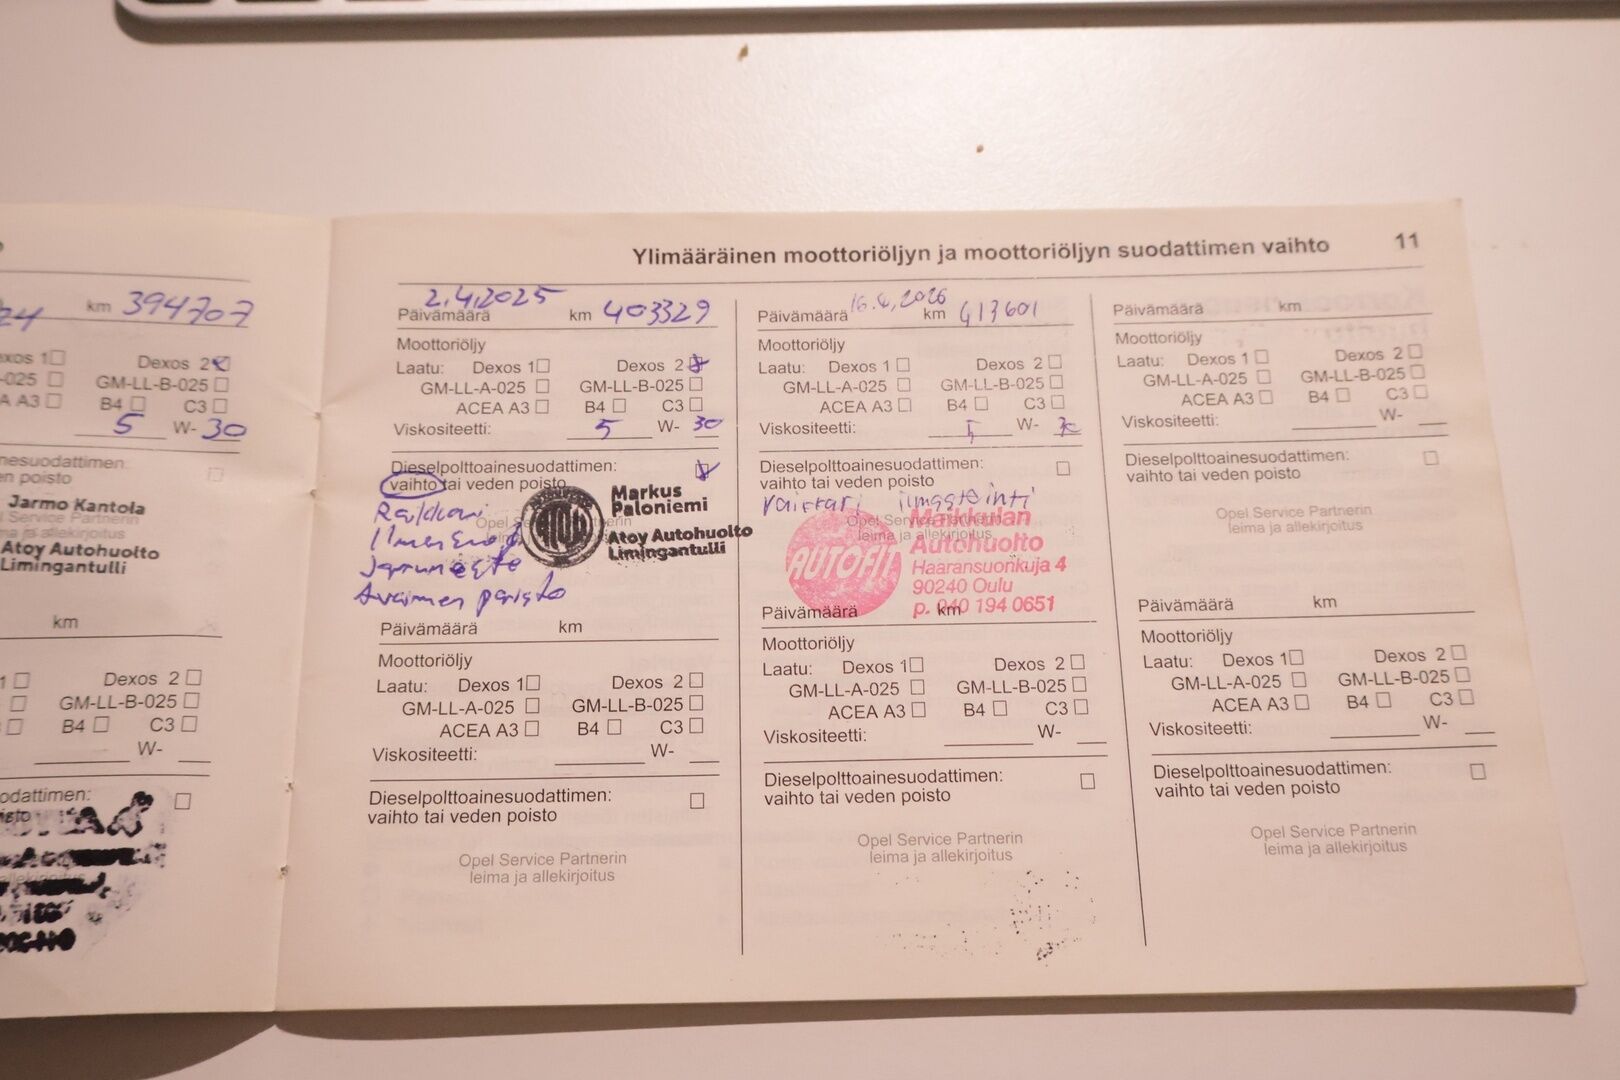 Ylimääräinen moottoriöljyn ja moottoriöljyn suodattimen vaihto 11
km 394707
Dexos 2
-025 GM-LL-B-025
A A3 B4 C3
5 W- 30
Jarmo Kantola
Atoy Autohuolto
Limingantulli
km
Dexos 2
GM-LL-B-025
B4 C3
W-
Päivämäärä 2.4.2025 km 403329
Moottoriöljy
Laatu: Dexos 1 Dexos 2
GM-LL-A-025 GM-LL-B-025
ACEA A3 B4 C3
Viskositeetti: 5 W- 30
Dieselpolttoainesuodattimen:
vaihto tai veden poisto
Markus
Paloniemi
Atoy Autohuolto
Limingantulli
Päivämäärä km
Moottoriöljy
Laatu: Dexos 1 Dexos 2
GM-LL-A-025 GM-LL-B-025
ACEA A3 B4 C3
Viskositeetti: W-
Dieselpolttoainesuodattimen:
vaihto tai veden poisto
Opel Service Partnerin
leima ja allekirjoitus
Päivämäärä 16.4.2026 km 413601
Moottoriöljy
Laatu: Dexos 1 Dexos 2
GM-LL-A-025 GM-LL-B-025
ACEA A3 B4 C3
Viskositeetti: 5 W- 30
Dieselpolttoainesuodattimen:
vaihto tai veden poisto
Opel Service Partnerin
leima ja allekirjoitus
AUTOFIT
Maikkulan
Autohuolto
Haaransuonkuja 4
90240 Oulu
p. 040 194 0651
Päivämäärä km
Moottoriöljy
Laatu: Dexos 1 Dexos 2
GM-LL-A-025 GM-LL-B-025
ACEA A3 B4 C3
Viskositeetti: W-
Dieselpolttoainesuodattimen:
vaihto tai veden poisto
Opel Service Partnerin
leima ja allekirjoitus
Päivämäärä km
Moottoriöljy
Laatu: Dexos 1 Dexos 2
GM-LL-A-025 GM-LL-B-025
ACEA A3 B4 C3
Viskositeetti: W-
Dieselpolttoainesuodattimen:
vaihto tai veden poisto
Opel Service Partnerin
leima ja allekirjoitus
Päivämäärä km
Moottoriöljy
Laatu: Dexos 1 Dexos 2
GM-LL-A-025 GM-LL-B-025
ACEA A3 B4 C3
Viskositeetti: W-
Dieselpolttoainesuodattimen:
vaihto tai veden poisto
Opel Service Partnerin
leima ja allekirjoitus